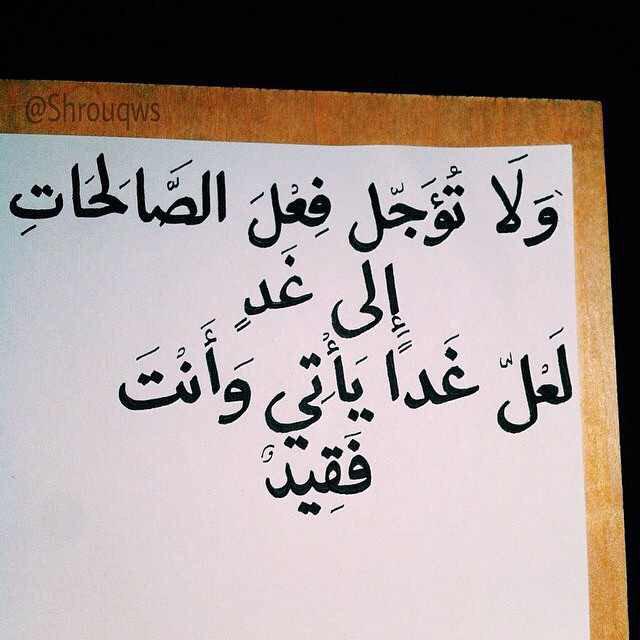 @Shrouqws
وَلَا تُؤَجّل فِعْلَ الصَّالَحَاتِ
إِلى غَدٍ
لَعْلّ غَداً يَأْتِي وَأَنْتَ
فَقِيدٌ